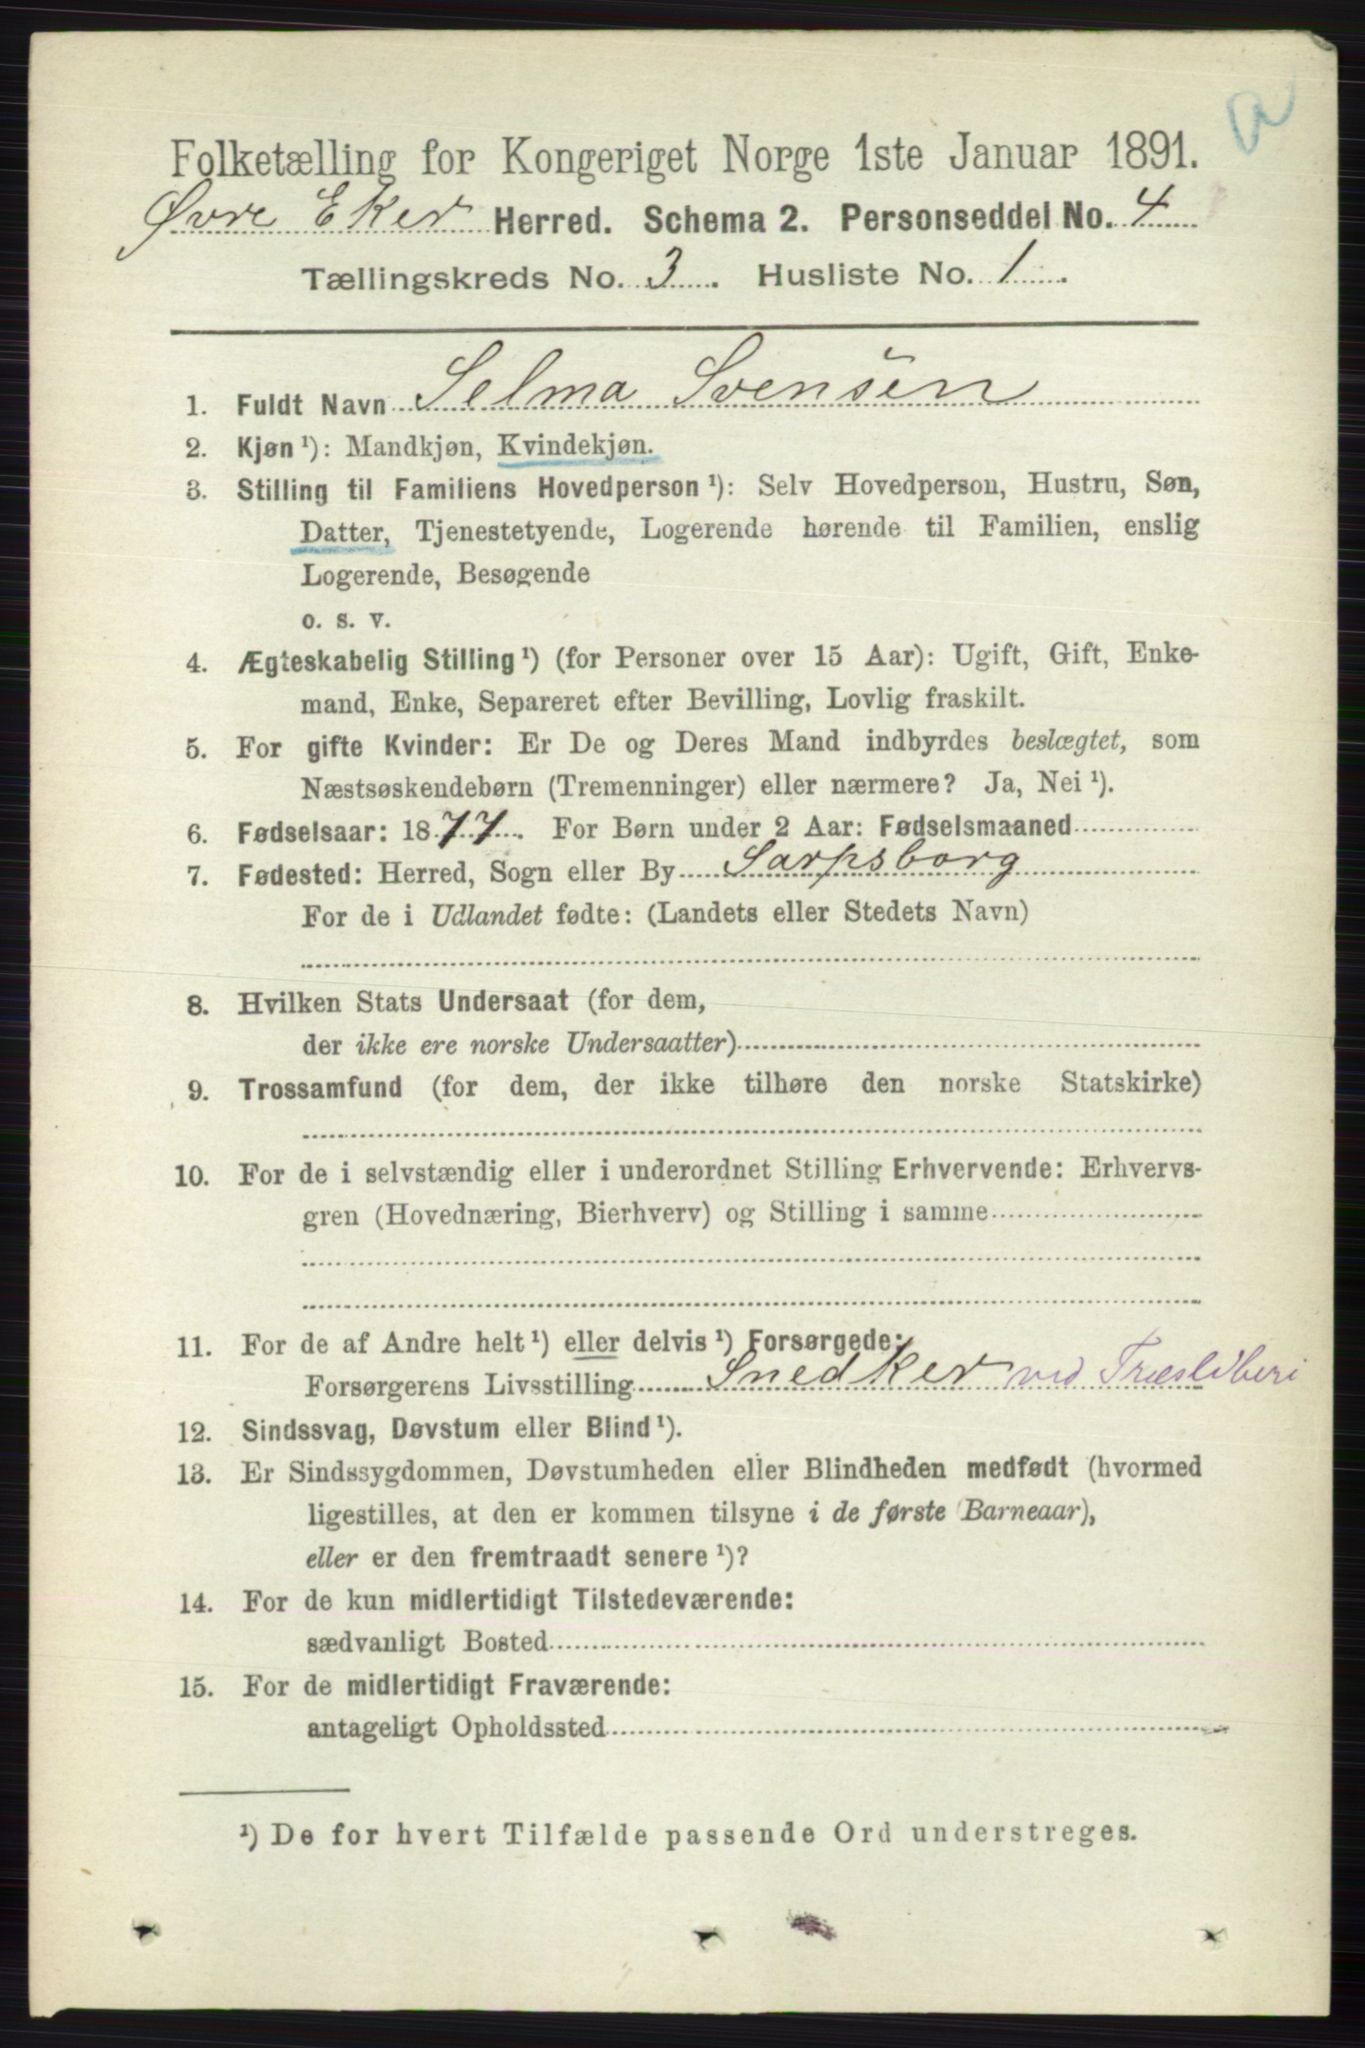 a
Folketælling for Kongeriget Norge 1ste Januar 1891.
Øvre Eker Herred. Schema 2. Personseddel No. 4
Tællingskreds No. 3. Husliste No. 1.
1. Fuldt Navn Selma Svensen
2. Kjøn ¹): Mandkjøn, Kvindekjøn.
3. Stilling til Familiens Hovedperson ¹): Selv Hovedperson, Hustru, Søn,
Datter, Tjenestetyende, Logerende hørende til Familien, enslig
Logerende, Besøgende
o. s. v.
4. Ægteskabelig Stilling ¹) (for Personer over 15 Aar): Ugift, Gift, Enke-
mand, Enke, Separeret efter Bevilling, Lovlig fraskilt.
5. For gifte Kvinder: Er De og Deres Mand indbyrdes beslægtet, som
Næstsøskendebørn (Tremenninger) eller nærmere? Ja, Nei ¹).
6. Fødselsaar: 1877. For Børn under 2 Aar: Fødselsmaaned
7. Fødested: Herred, Sogn eller By Sarpsborg
For de i Udlandet fødte: (Landets eller Stedets Navn)
8. Hvilken Stats Undersaat (for dem,
der ikke ere norske Undersaatter)
9. Trossamfund (for dem, der ikke tilhøre den norske Statskirke)
10. For de i selvstændig eller i underordnet Stilling Erhvervende: Erhvervs-
gren (Hovednæring, Bierhverv) og Stilling i samme
11. For de af Andre helt ¹) eller delvis ¹) Forsørgede:
Forsørgerens Livsstilling Snedker ved Træsliberi
12. Sindssvag, Døvstum eller Blind ¹).
13. Er Sindssygdommen, Døvstumheden eller Blindheden medfødt (hvormed
ligestilles, at den er kommen tilsyne i de første Barneaar),
eller er den fremtraadt senere ¹)?
14. For de kun midlertidigt Tilstedeværende:
sædvanligt Bosted
15. For de midlertidigt Fraværende:
antageligt Opholdssted
¹) De for hvert Tilfælde passende Ord understreges.